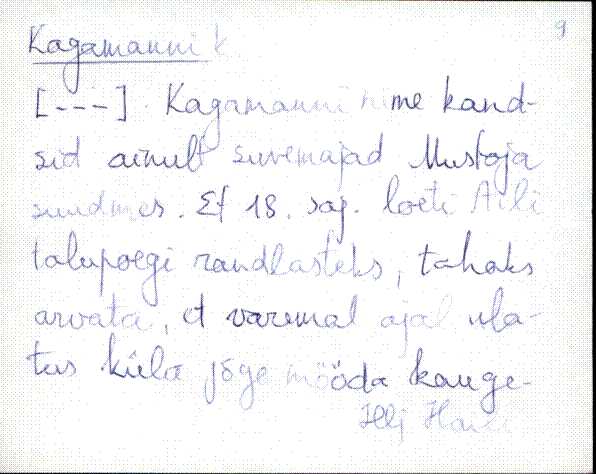 9
Kagamanni k
[---]. Kagamanni nime kand-
sid ainult suvemajad Mustoja
suudmes. Et 18. saj. loeti Aili
talupoegi randlasteks, tahaks
arvata, et varemal ajal ula-
tus küla jõge mööda kauge-